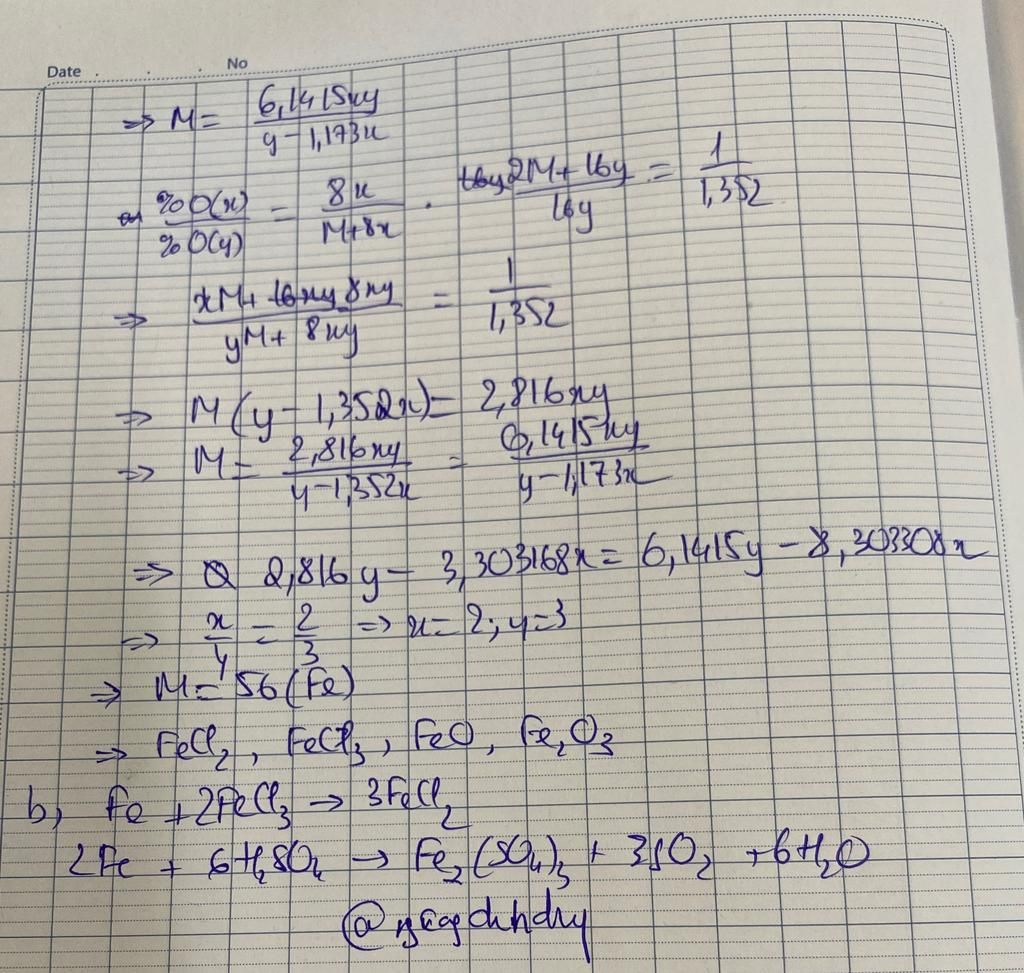 Date . . . No
=> M = 6,1415xy / (y - 1,173x)
%O(x) / %O(y) = 8x / (M + 8x) . (2M + 16y) / 16y = 1 / 1,352
=> (xM + 8xy) / (yM + 8xy) = 1 / 1,352
=> M(y - 1,352x) = 2,816xy
=> M = 2,816xy / (y - 1,352x) = 6,1415xy / (y - 1,173x)
=> 2,816y - 3,303168x = 6,1415y - 8,303308x
=> x/y = 2/3 => x = 2; y = 3
=> M = 56 (Fe)
=> FeCl₂, FeCl₃, FeO, Fe₂O₃
b, Fe + 2FeCl₃ → 3FeCl₂
2Fe + 6H₂SO₄ → Fe₂(SO₄)₃ + 3SO₂ + 6H₂O